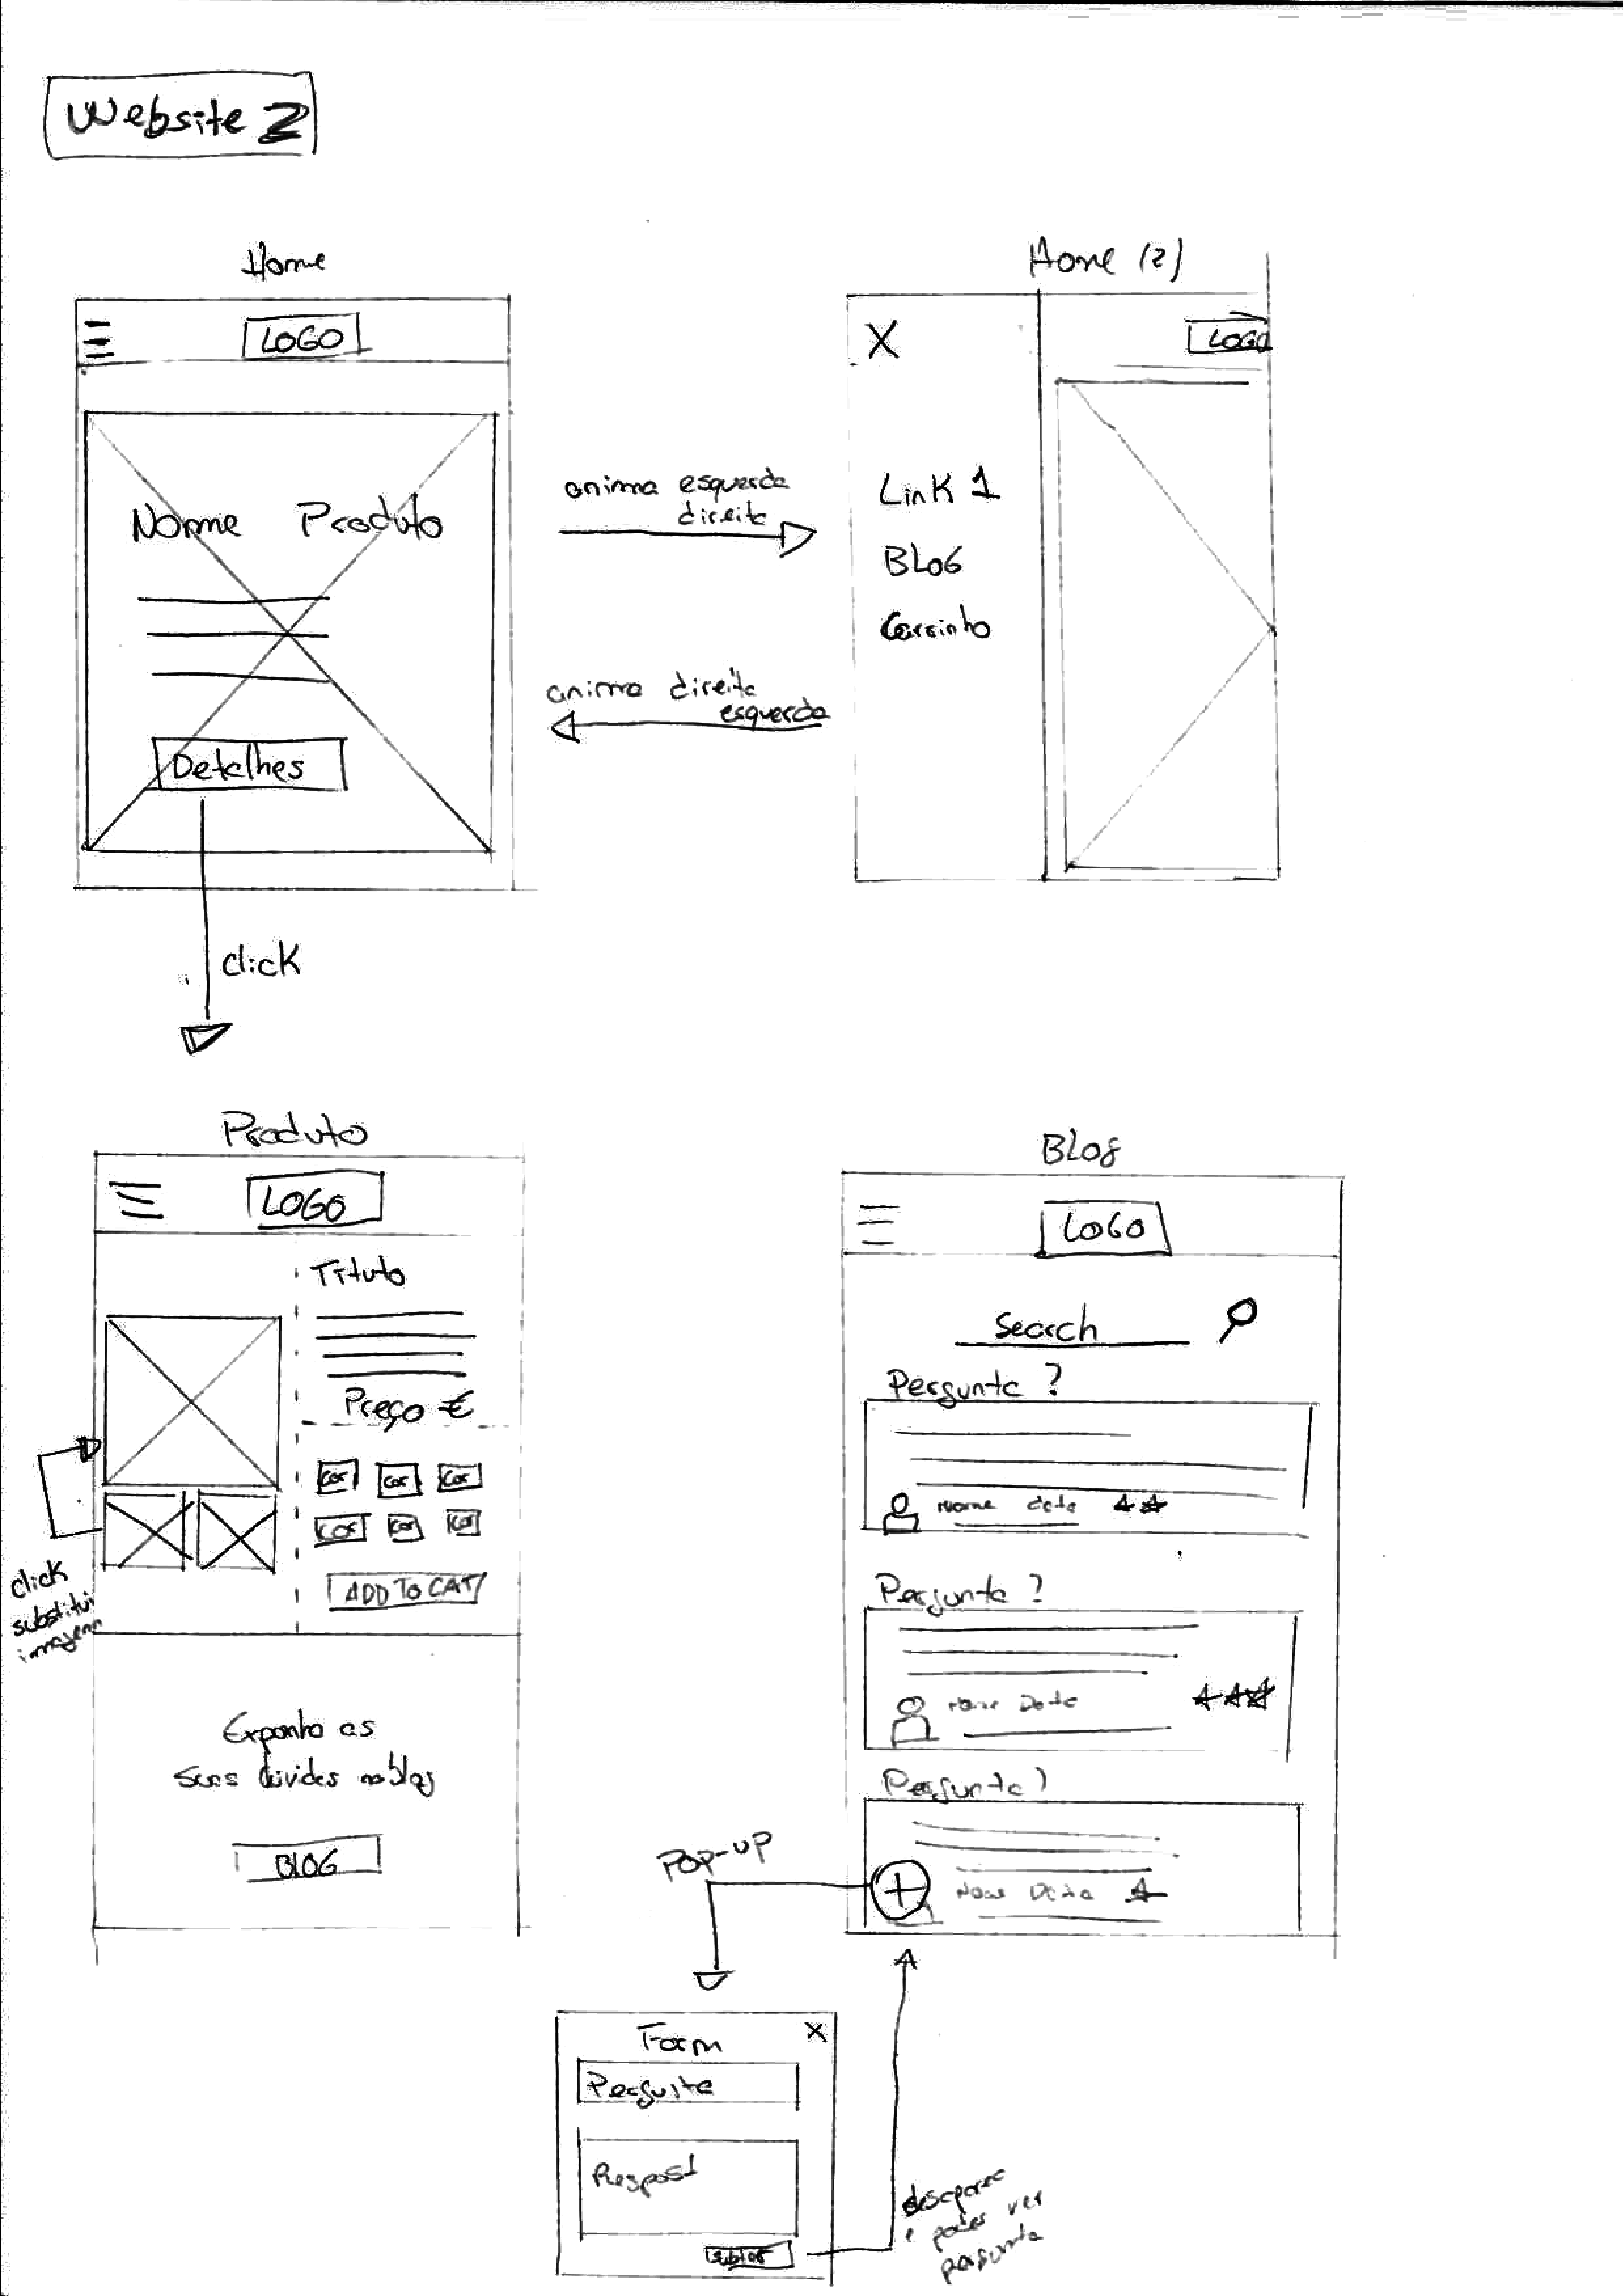 Website 2
Home
LOGO
Nome Produto
Detalhes
click
anima esquerda
direita
anima direita
esquerda
Home (2)
X
LOGO
Link 1
BLOG
Carrinho
Produto
LOGO
Título
Preço €
Cor Cor Cor
Cor Cor Cor
ADD TO CAT
click
substitui
imagem
Exponha as
suas dúvidas no blog
BLOG
Blog
LOGO
Search
Pergunta ?
Nome data
Pergunta ?
Nome Data
Pergunta ?
Nome Data
POP-UP
Form
X
Pergunta
desaparece
e podes ver
pergunta